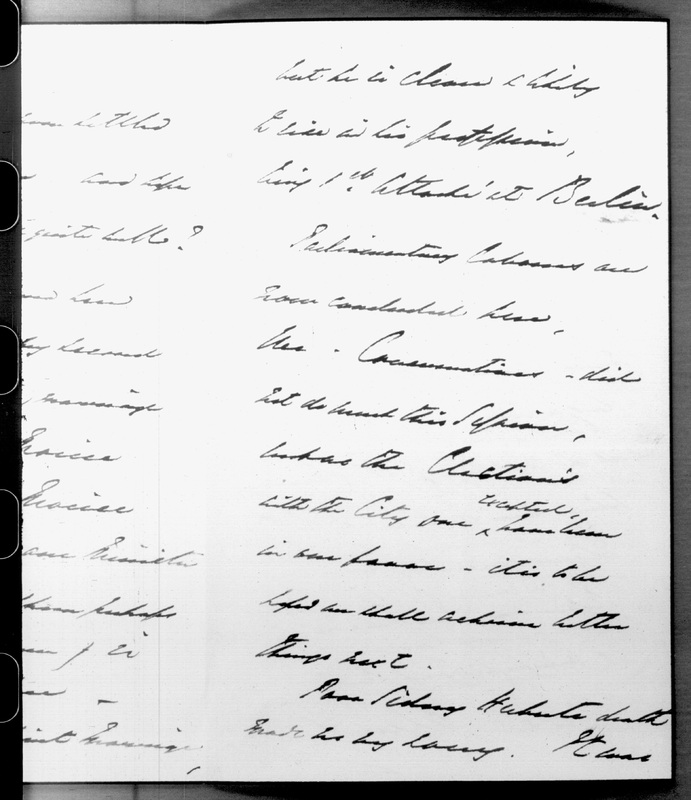 settled
and hope
quite well?
second
marriage
perhaps
marriage,
but he is clever & likely
to rise in his profession,
being 1st Attaché at Berlin.
Parliamentary Labours are
now concluded here,
We - Conservatives - did
not do much this Session,
but as the Elections
with the City one excepted, have been
in our favor - it is to be
hoped we shall achieve better
things next.
Poor Sidney Herbert's death
made us very sorry. It was